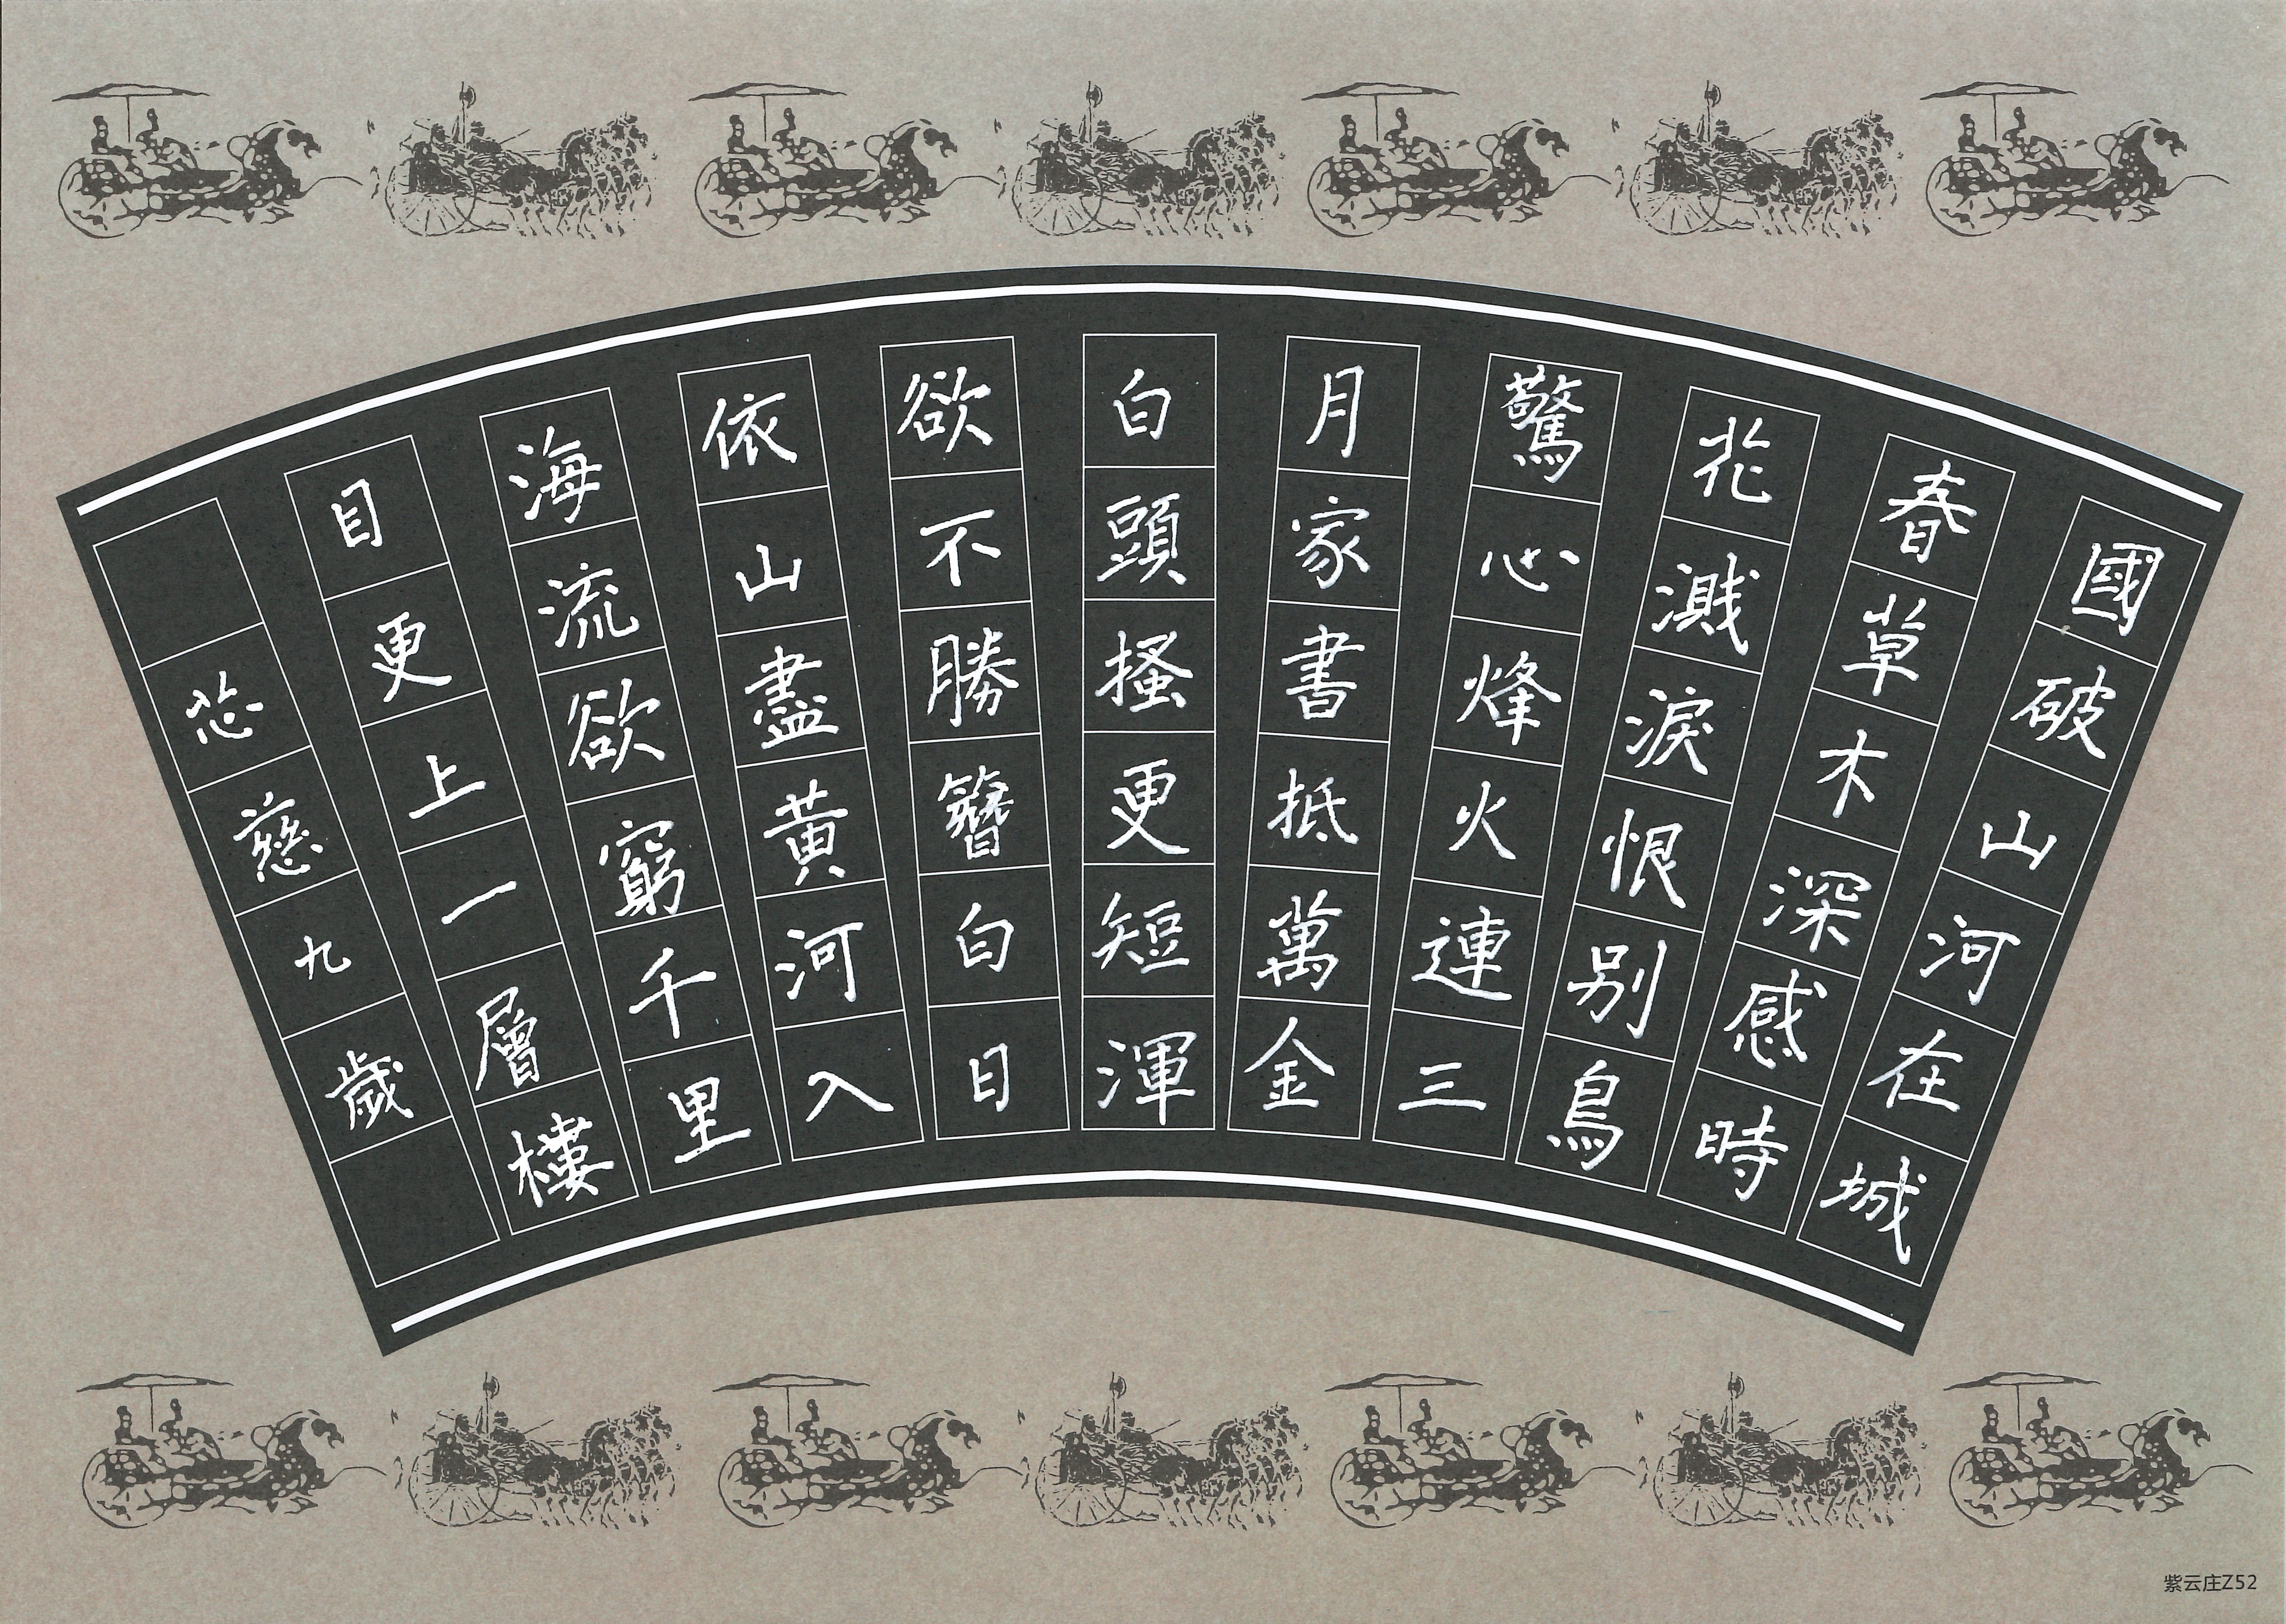 國破山河在城
春草木深感時
花濺淚恨别鳥
驚心烽火連三
月家書抵萬金
白頭搔更短渾
欲不勝簪白日
依山盡黄河入
海流欲窮千里
目更上一層樓
芯慈九歲
紫云庄Z52